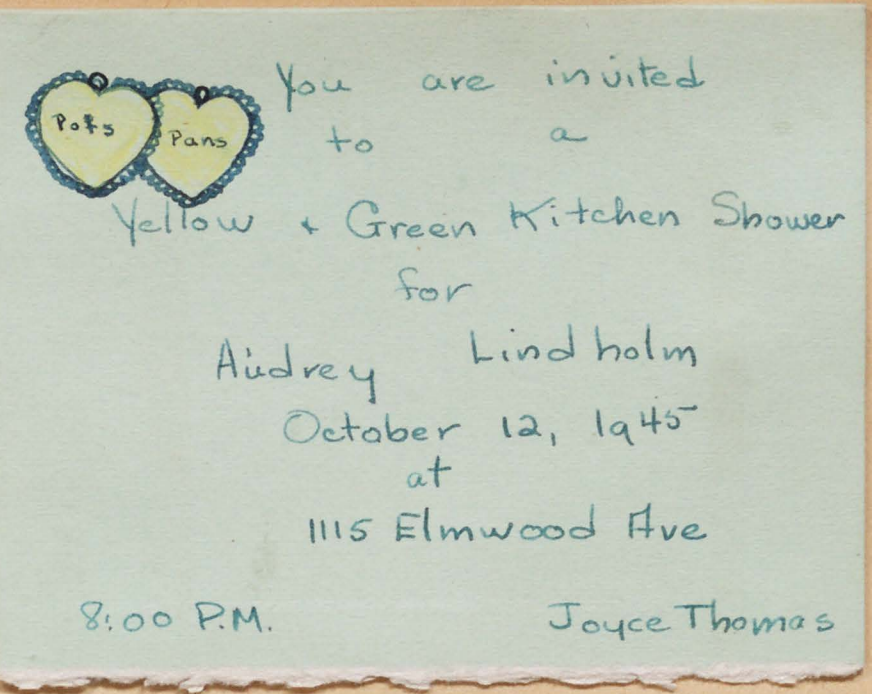 You are invited
Pots
Pans
to a
Yellow + Green Kitchen Shower
for
Audrey Lindholm
October 12, 1945
at
1115 Elmwood Ave
8:00 P.M. Joyce Thomas